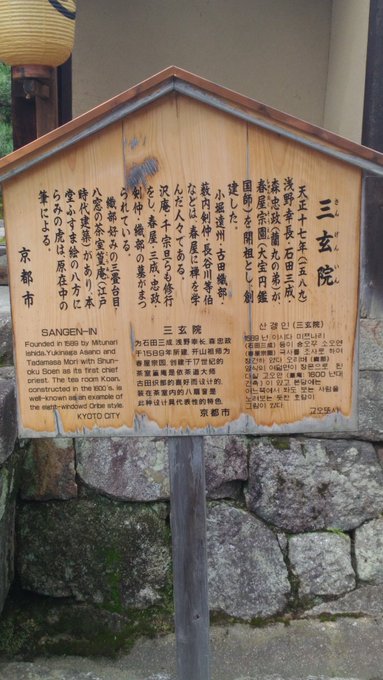 三玄院
さんげんいん
天正十七年(一五八九)
浅野幸長・石田三成・
森忠政(蘭丸の弟)が、
春屋宗園(大宝円鑑
国師)を開祖とし、創
建した。
小堀遠州・古田織部・
薮内剣仲・長谷川等伯
などは、春屋に禅を学
んだ人々である。
沢庵・千宗旦らも修行
をし、春屋・三成・忠政・
剣仲・織部の墓がまつ
られている。
織部好みの三畳台目
八窓の茶室篁庵(江戸
時代建築)があり、本
堂ふすま絵の八方に
らみの虎は、原在中の
筆による。
京都市
SANGEN-IN
Founded in 1589 by Mitunari
Ishida,Yukinaga Asano and
Tadamasa Mori with Shun-
oku Soen as its first chief
priest. The tea room Koan,
constructed in the 1600's, is
well-known as an example of
the eight-windowd Oribe style.
KYOTO CITY
三玄院
为石田三成,浅野幸长,森忠政
于1589年所建,开山祖师为
春屋宗园,创建于17世纪的
茶室篁庵是依茶道大师
古田织部的喜好而设计的,
装在茶室内的八扇窗是
此种设计具代表性的特色.
京都市
산겡인 (三玄院)
1589 년 이시다 미쯔나리
(石田三成) 등이 춘오꾸 소오엔
(春屋宗園) 국사를 조사로 하여
있고 본당에는
사람을
호랑이
그림이 있다
교오또시